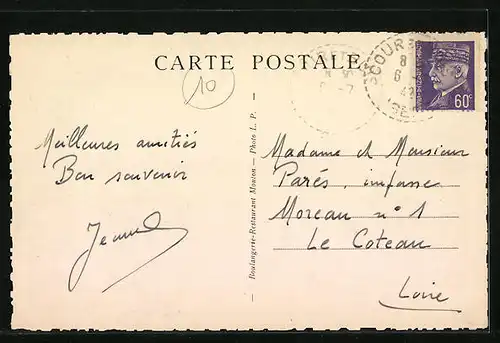 CARTE POSTALE
10
60c
Meilleures amitiés
Bon souvenir
Boulangerie-Restaurant Mouton — Photo L. P. —
Madame et Monsieur
Parés, impasse
Moreau n° 1
Le Coteau
Loire